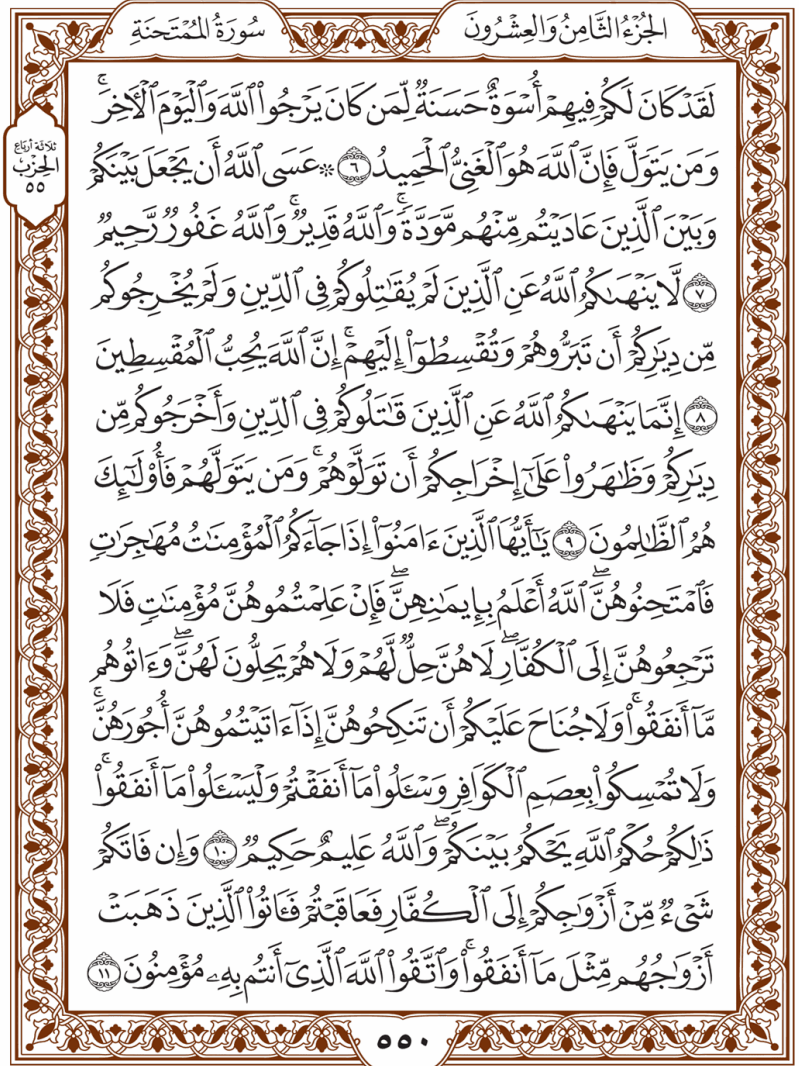 الجُزْءُ الثَّامِنُ وَالعِشْرُونَ
سُورَةُ المُمْتَحنَةِ
لَقَدْ كَانَ لَكُمْ فِيهِمْ أُسْوَةٌ حَسَنَةٌ لِّمَن كَانَ يَرْجُوا۟ ٱللَّهَ وَٱلْيَوْمَ ٱلْأٓخِرَۚ
وَمَن يَتَوَلَّ فَإِنَّ ٱللَّهَ هُوَ ٱلْغَنِىُّ ٱلْحَمِيدُ ٦ ۞ عَسَى ٱللَّهُ أَن يَجْعَلَ بَيْنَكُمْ
وَبَيْنَ ٱلَّذِينَ عَادَيْتُم مِّنْهُم مَّوَدَّةًۚ وَٱللَّهُ قَدِيرٌۚ وَٱللَّهُ غَفُورٌ رَّحِيمٌ
٧ لَّا يَنْهَىٰكُمُ ٱللَّهُ عَنِ ٱلَّذِينَ لَمْ يُقَٰتِلُوكُمْ فِى ٱلدِّينِ وَلَمْ يُخْرِجُوكُم
مِّن دِيَٰرِكُمْ أَن تَبَرُّوهُمْ وَتُقْسِطُوٓا۟ إِلَيْهِمْۚ إِنَّ ٱللَّهَ يُحِبُّ ٱلْمُقْسِطِينَ
٨ إِنَّمَا يَنْهَىٰكُمُ ٱللَّهُ عَنِ ٱلَّذِينَ قَٰتَلُوكُمْ فِى ٱلدِّينِ وَأَخْرَجُوكُم مِّن
دِيَٰرِكُمْ وَظَٰهَرُوا۟ عَلَىٰٓ إِخْرَاجِكُمْ أَن تَوَلَّوْهُمْۚ وَمَن يَتَوَلَّهُمْ فَأُو۟لَٰٓئِكَ
هُمُ ٱلظَّٰلِمُونَ ٩ يَٰٓأَيُّهَا ٱلَّذِينَ ءَامَنُوٓا۟ إِذَا جَآءَكُمُ ٱلْمُؤْمِنَٰتُ مُهَٰجِرَٰتٍ
فَٱمْتَحِنُوهُنَّۖ ٱللَّهُ أَعْلَمُ بِإِيمَٰنِهِنَّۖ فَإِنْ عَلِمْتُمُوهُنَّ مُؤْمِنَٰتٍ فَلَا
تَرْجِعُوهُنَّ إِلَى ٱلْكُفَّارِۖ لَا هُنَّ حِلٌّ لَّهُمْ وَلَا هُمْ يَحِلُّونَ لَهُنَّۖ وَءَاتُوهُم
مَّآ أَنفَقُوا۟ۚ وَلَا جُنَاحَ عَلَيْكُمْ أَن تَنكِحُوهُنَّ إِذَآ ءَاتَيْتُمُوهُنَّ أُجُورَهُنَّۚ
وَلَا تُمْسِكُوا۟ بِعِصَمِ ٱلْكَوَافِرِ وَسْـَٔلُوا۟ مَآ أَنفَقْتُمْ وَلْيَسْـَٔلُوا۟ مَآ أَنفَقُوا۟ۚ
ذَٰلِكُمْ حُكْمُ ٱللَّهِ يَحْكُمُ بَيْنَكُمْۖ وَٱللَّهُ عَلِيمٌ حَكِيمٌ ١٠ وَإِن فَاتَكُمْ
شَىْءٌ مِّنْ أَزْوَٰجِكُمْ إِلَى ٱلْكُفَّارِ فَعَاقَبْتُمْ فَـَٔاتُوا۟ ٱلَّذِينَ ذَهَبَتْ
أَزْوَٰجُهُم مِّثْلَ مَآ أَنفَقُوا۟ۚ وَٱتَّقُوا۟ ٱللَّهَ ٱلَّذِىٓ أَنتُم بِهِۦ مُؤْمِنُونَ ١١
ثلاثة أرباع
الحِزْب
٥٥
٥٥٠